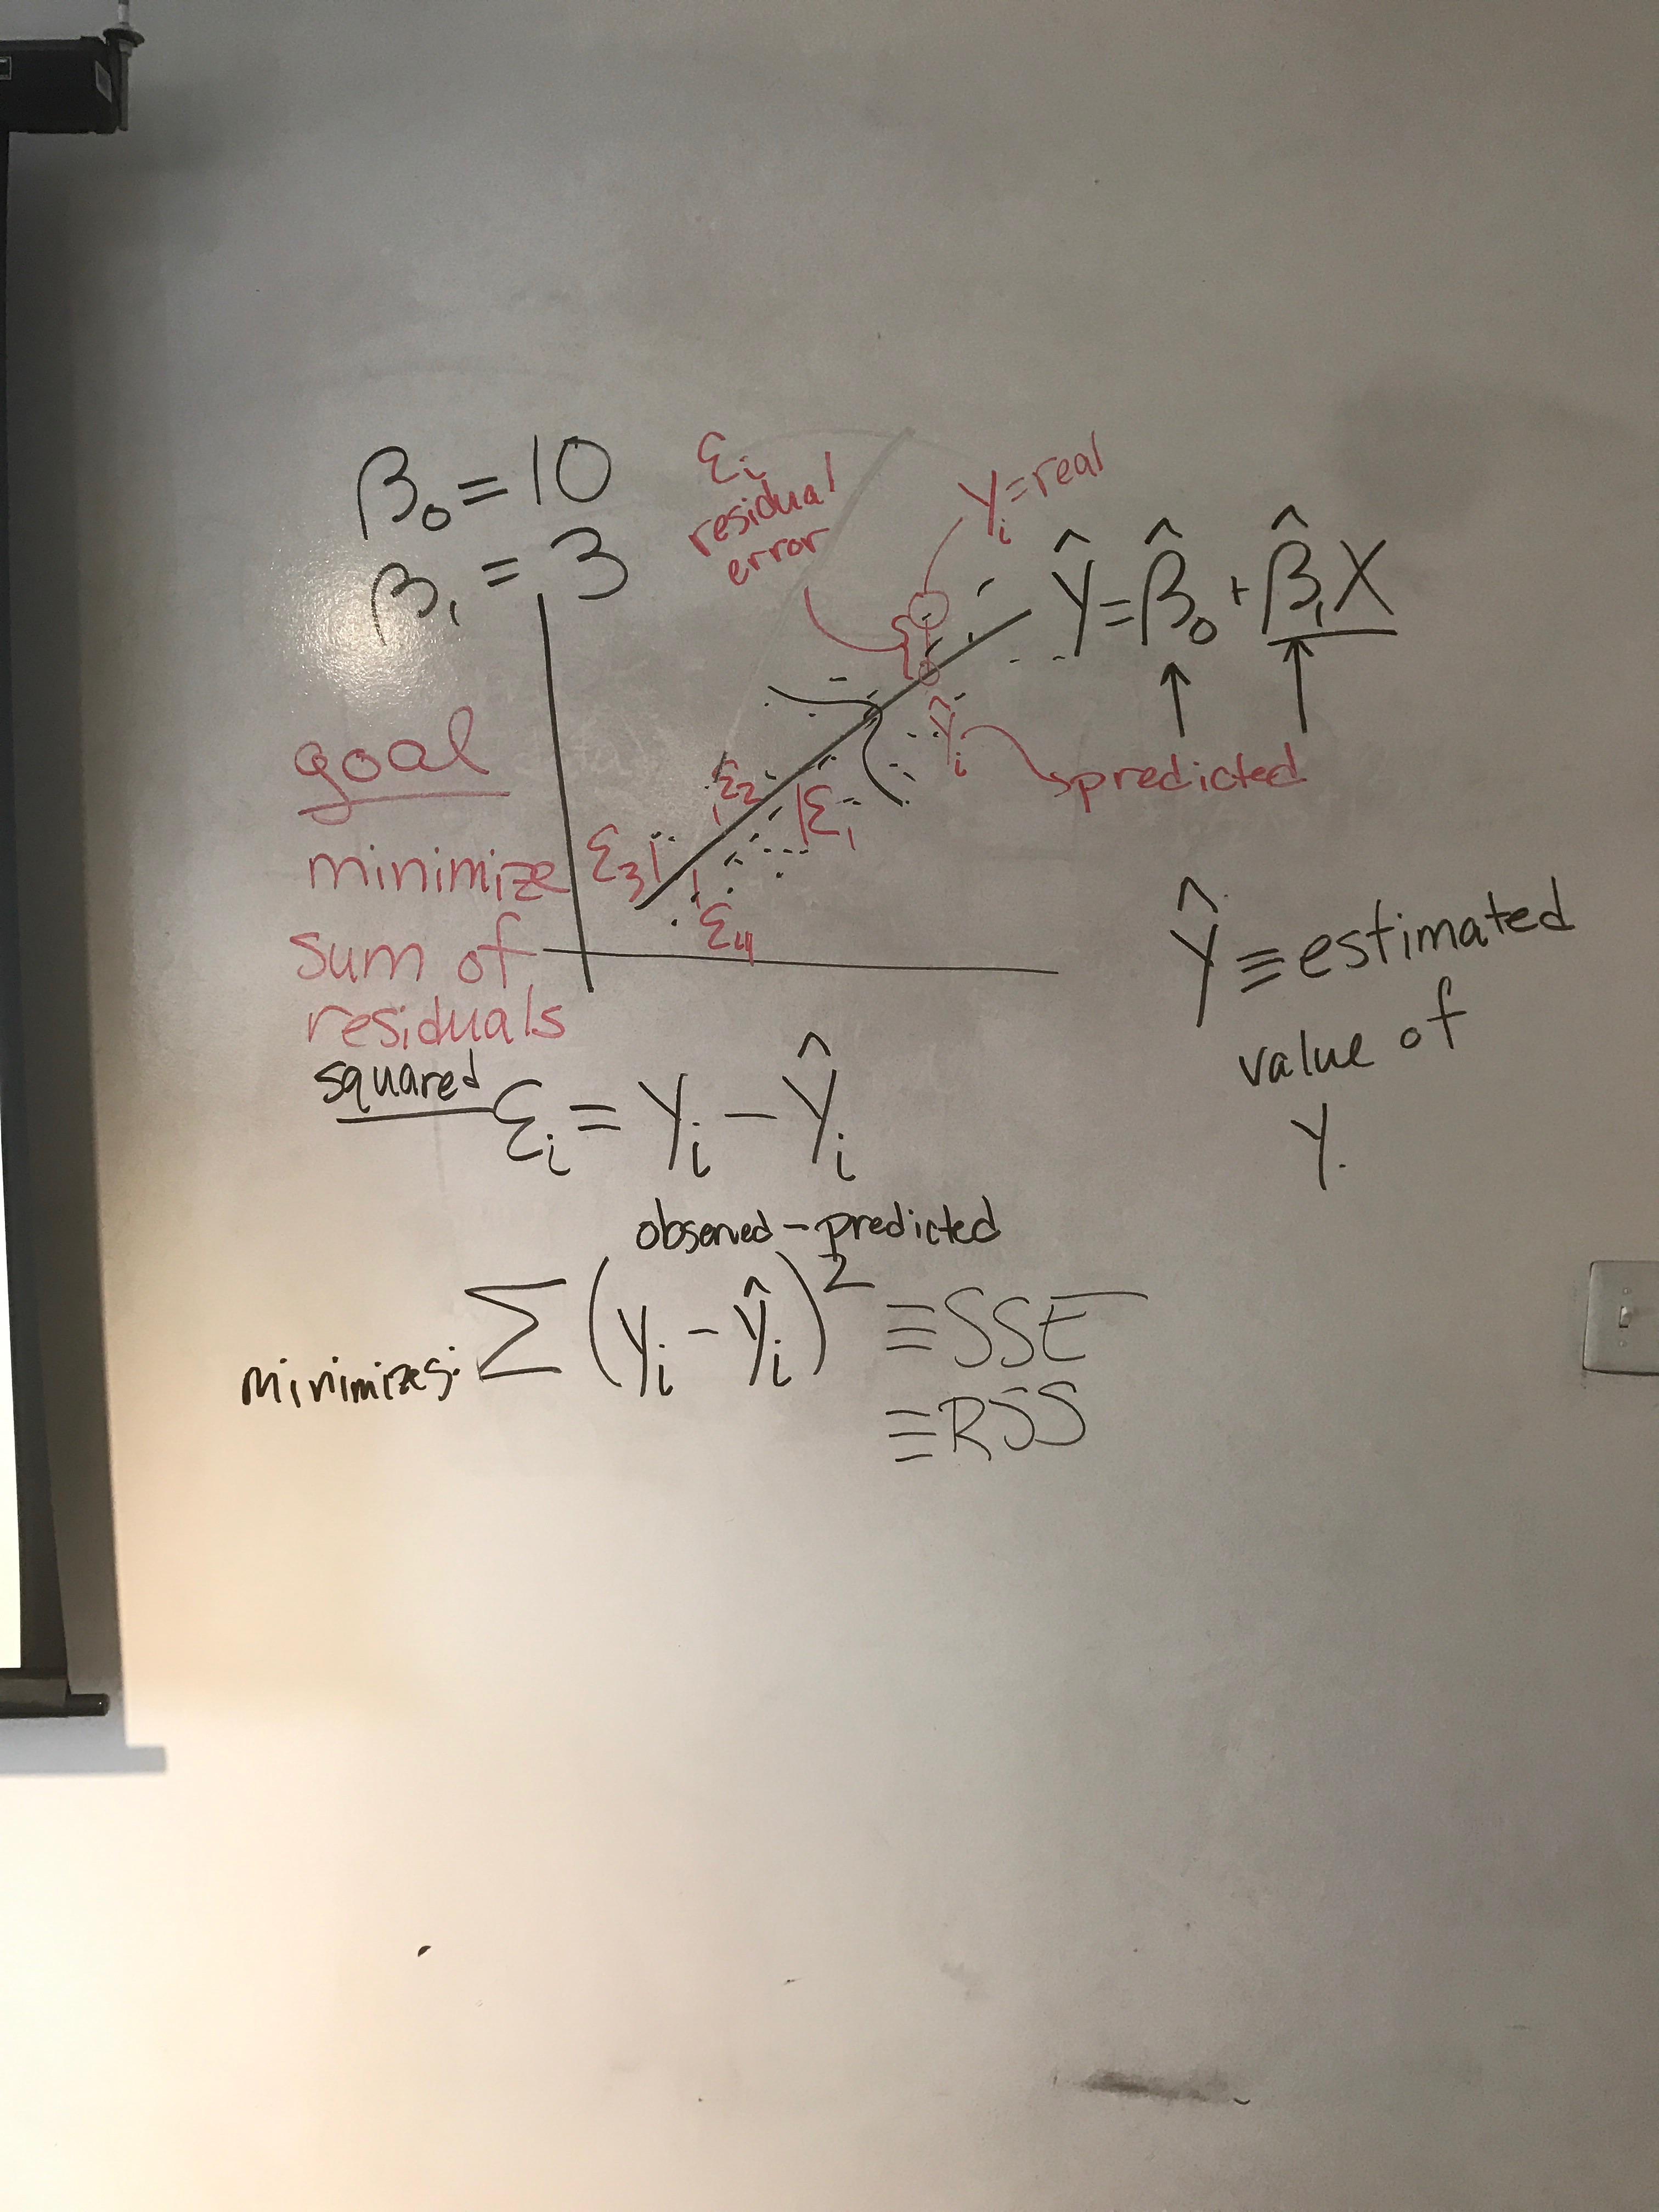 β₀ = 10
β₁ = 3
εᵢ
residual
error
yᵢ = real
Ŷ = β̂₀ + β̂₁X
ŷᵢ
predicted
ε₂
ε₁
ε₃
ε₄
goal
minimize
sum of
residuals
squared
Ŷ ≡ estimated
value of
Y.
εᵢ = Yᵢ − Ŷᵢ
observed − predicted
minimizes: Σ(yᵢ − ŷᵢ)² ≡ SSE
≡ RSS